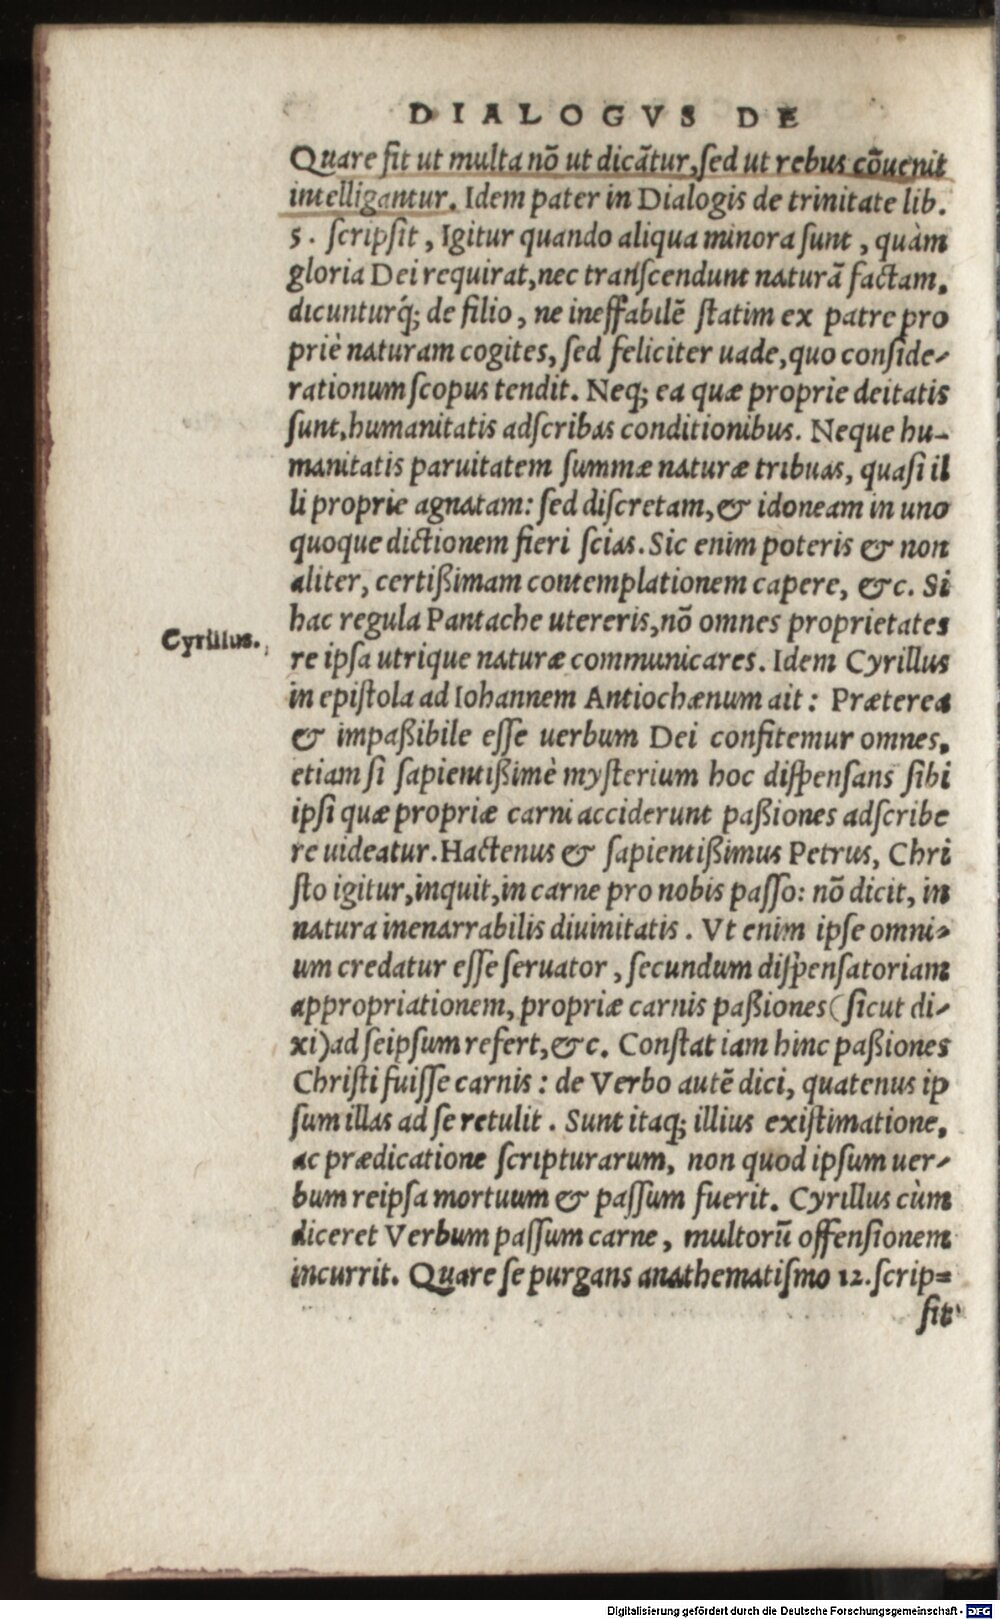 DIALOGVS DE
Quare fit ut multa nõ ut dicãtur, ſed ut rebus cõuenit
intelligantur. Idem pater in Dialogis de trinitate lib.
5. ſcripſit, Igitur quando aliqua minora ſunt, quàm
gloria Dei requirat, nec tranſcendunt naturã factam,
dicunturq́; de filio, ne ineffabilẽ ſtatim ex patre pro
priè naturam cogites, ſed feliciter uade, quo conſide-
rationum ſcopus tendit. Neq; ea quæ proprie deitatis
ſunt, humanitatis adſcribas conditionibus. Neque hu-
manitatis paruitatem ſummæ naturæ tribuas, quaſi il
li proprie agnatam: ſed diſcretam, & idoneam in uno
quoque dictionem fieri ſcias. Sic enim poteris & non
aliter, certißimam contemplationem capere, &c. Si
hac regula Pantache utereris, nõ omnes proprietates
Cyrillus.
re ipſa utrique naturæ communicares. Idem Cyrillus
in epiſtola ad Iohannem Antiochænum ait: Præterea
& impaßibile eſſe uerbum Dei confitemur omnes,
etiam ſi ſapientißimè myſterium hoc diſpenſans ſibi
ipſi quæ propriæ carni acciderunt paßiones adſcribe
re uideatur. Hactenus & ſapientißimus Petrus, Chri
ſto igitur, inquit, in carne pro nobis paſſo: nõ dicit, in
natura inenarrabilis diuinitatis. Vt enim ipſe omni-
um credatur eſſe ſeruator, ſecundum diſpenſatoriam
appropriationem, propriæ carnis paßiones (ſicut di-
xi) ad ſeipſum refert, &c. Conſtat iam hinc paßiones
Chriſti fuiſſe carnis: de Verbo autẽ dici, quatenus ip
ſum illas ad ſe retulit. Sunt itaq; illius exiſtimatione,
ac prædicatione ſcripturarum, non quod ipſum uer-
bum reipſa mortuum & paſſum fuerit. Cyrillus cùm
diceret Verbum paſſum carne, multorũ offenſionem
incurrit. Quare ſe purgans anathematiſmo 12. ſcrip=
ſit
Digitalisierung gefördert durch die Deutsche Forschungsgemeinschaft - DFG